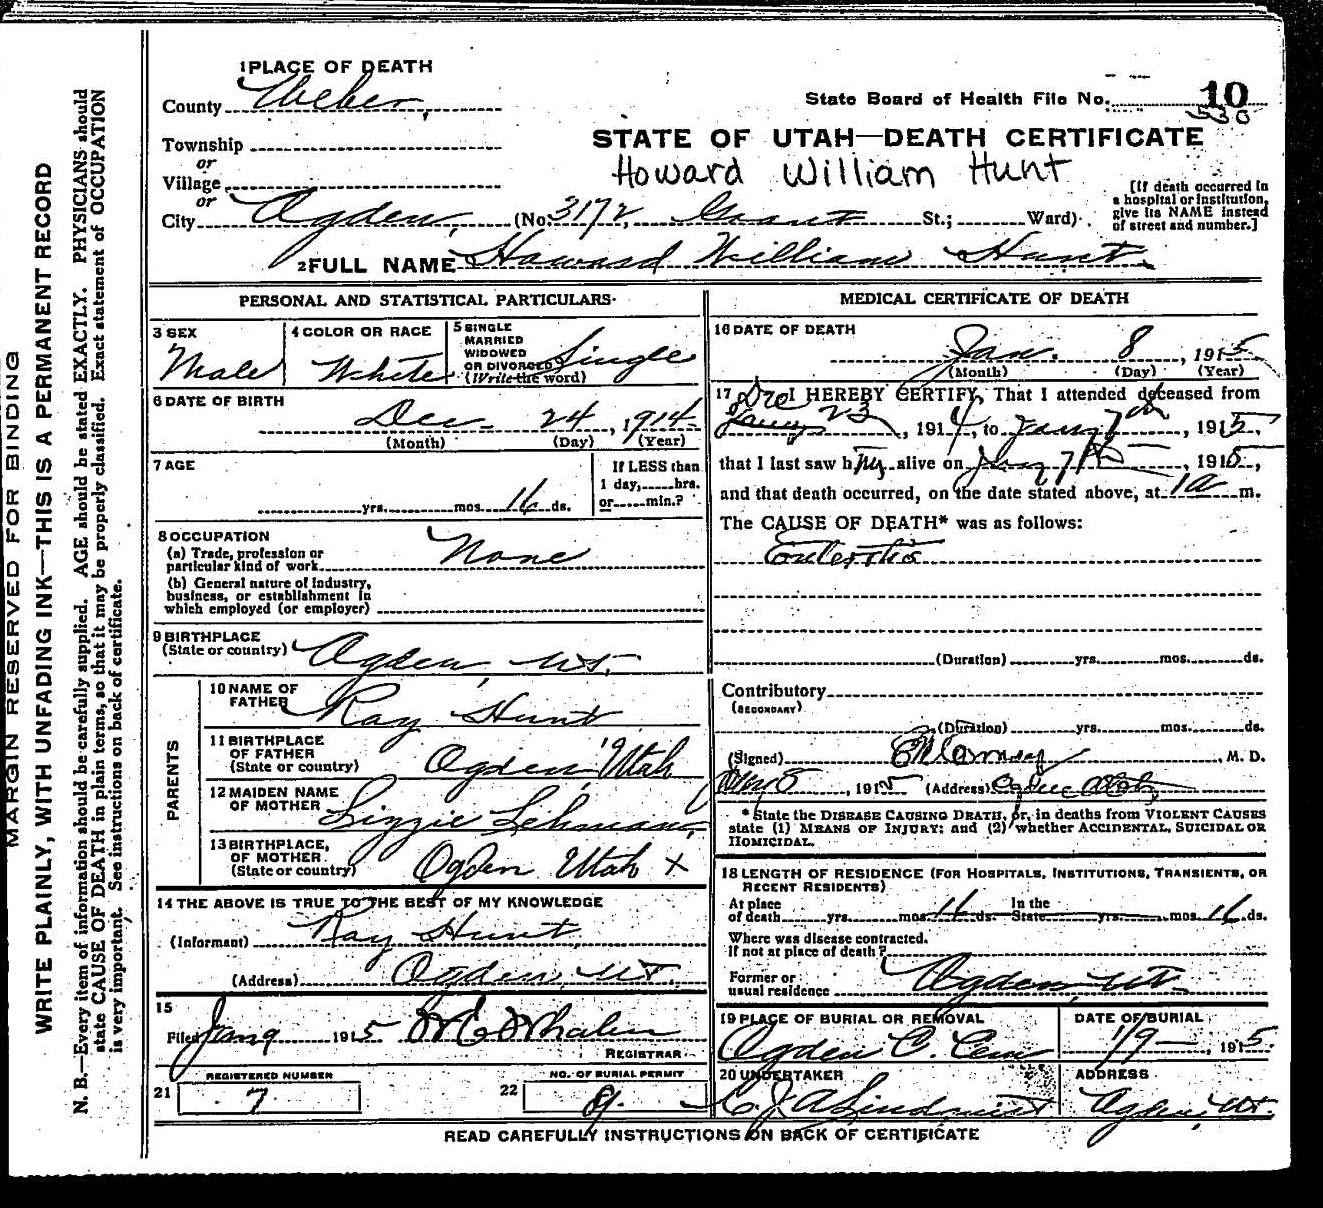 MARGIN RESERVED FOR BINDING
WRITE PLAINLY, WITH UNFADING INK—THIS IS A PERMANENT RECORD
N. B.—Every item of information should be carefully supplied. AGE should be stated EXACTLY. PHYSICIANS should
state CAUSE OF DEATH in plain terms, so that it may be properly classified. Exact statement of OCCUPATION
is very important. See instructions on back of certificate.
1 PLACE OF DEATH
County Weber,
Township
or
Village
or
City Ogden, (No. 3172, Grant St.; Ward)
State Board of Health File No. 10
530
STATE OF UTAH—DEATH CERTIFICATE
Howard William Hunt
[If death occurred in
a hospital or institution,
give its NAME instead
of street and number.]
2 FULL NAME Howard William Hunt.
PERSONAL AND STATISTICAL PARTICULARS
3 SEX
Male
4 COLOR OR RACE
White
5 SINGLE
MARRIED
WIDOWED
OR DIVORCED
(Write the word)
Single
6 DATE OF BIRTH
Dec. 24, 1914
(Month) (Day) (Year)
7 AGE
yrs. mos. 16 ds.
If LESS than
1 day, hrs.
or min.?
8 OCCUPATION
(a) Trade, profession or
particular kind of work None
(b) General nature of industry,
business, or establishment in
which employed (or employer)
9 BIRTHPLACE
(State or country) Ogden, Ut.
PARENTS
10 NAME OF
FATHER Ray Hunt
11 BIRTHPLACE
OF FATHER
(State or country) Ogden, Utah
12 MAIDEN NAME
OF MOTHER Lizzie Lehman
13 BIRTHPLACE,
OF MOTHER
(State or country) Ogden Utah X
14 THE ABOVE IS TRUE TO THE BEST OF MY KNOWLEDGE
(Informant) Ray Hunt
(Address) Ogden, Ut.
15
Filed Jan 9 1915
REGISTRAR
REGISTERED NUMBER
21 7
NO. OF BURIAL PERMIT
22
MEDICAL CERTIFICATE OF DEATH
16 DATE OF DEATH
Jan. 8, 1915
(Month) (Day) (Year)
17 I HEREBY CERTIFY, That I attended deceased from
Dec 23, 1914, to Jany 7th, 1915,
that I last saw him alive on Jany 7th, 1915,
and that death occurred, on the date stated above, at 1a m.
The CAUSE OF DEATH* was as follows:
Enteritis
(Duration) yrs. mos. ds.
Contributory
(SECONDARY)
(Duration) yrs. mos. ds.
(Signed) M. D.
Jany 8, 1915 (Address) Ogden Utah
* State the DISEASE CAUSING DEATH, or, in deaths from VIOLENT CAUSES
state (1) MEANS OF INJURY; and (2) whether ACCIDENTAL, SUICIDAL OR
HOMICIDAL.
18 LENGTH OF RESIDENCE (FOR HOSPITALS, INSTITUTIONS, TRANSIENTS, OR
RECENT RESIDENTS)
At place
of death yrs. mos. 16 ds.
In the
State yrs. mos. 16 ds.
Where was disease contracted.
If not at place of death?
Former or
usual residence Ogden, Ut.
19 PLACE OF BURIAL OR REMOVAL
Ogden C. Cem
DATE OF BURIAL
1/9, 1915.
20 UNDERTAKER
Lindquist
ADDRESS
Ogden, Ut.
READ CAREFULLY INSTRUCTIONS ON BACK OF CERTIFICATE